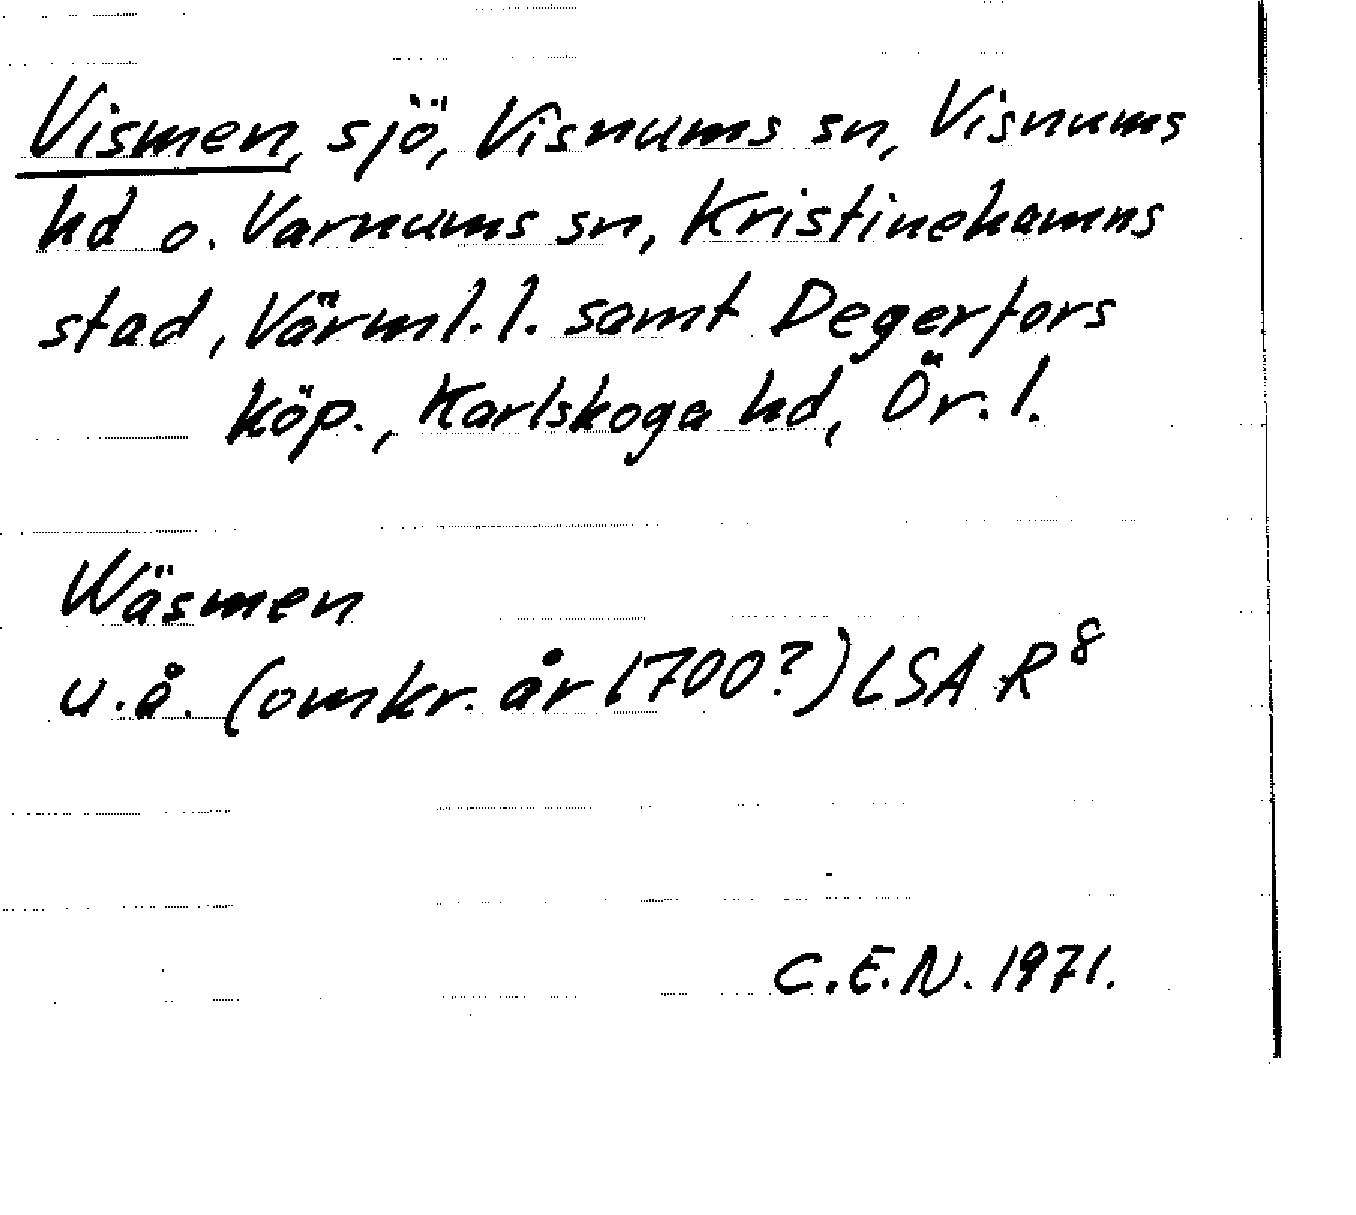 Vismen, sjö, Visnums sn, Visnums
hd o. Varnums sn, Kristinehamns
stad, Värml. l. samt Degerfors
köp., Karlskoga hd, Ör. l.
Wäsmen
u.å. (omkr. år 1700?) LSA R⁸
C.E.N. 1971.